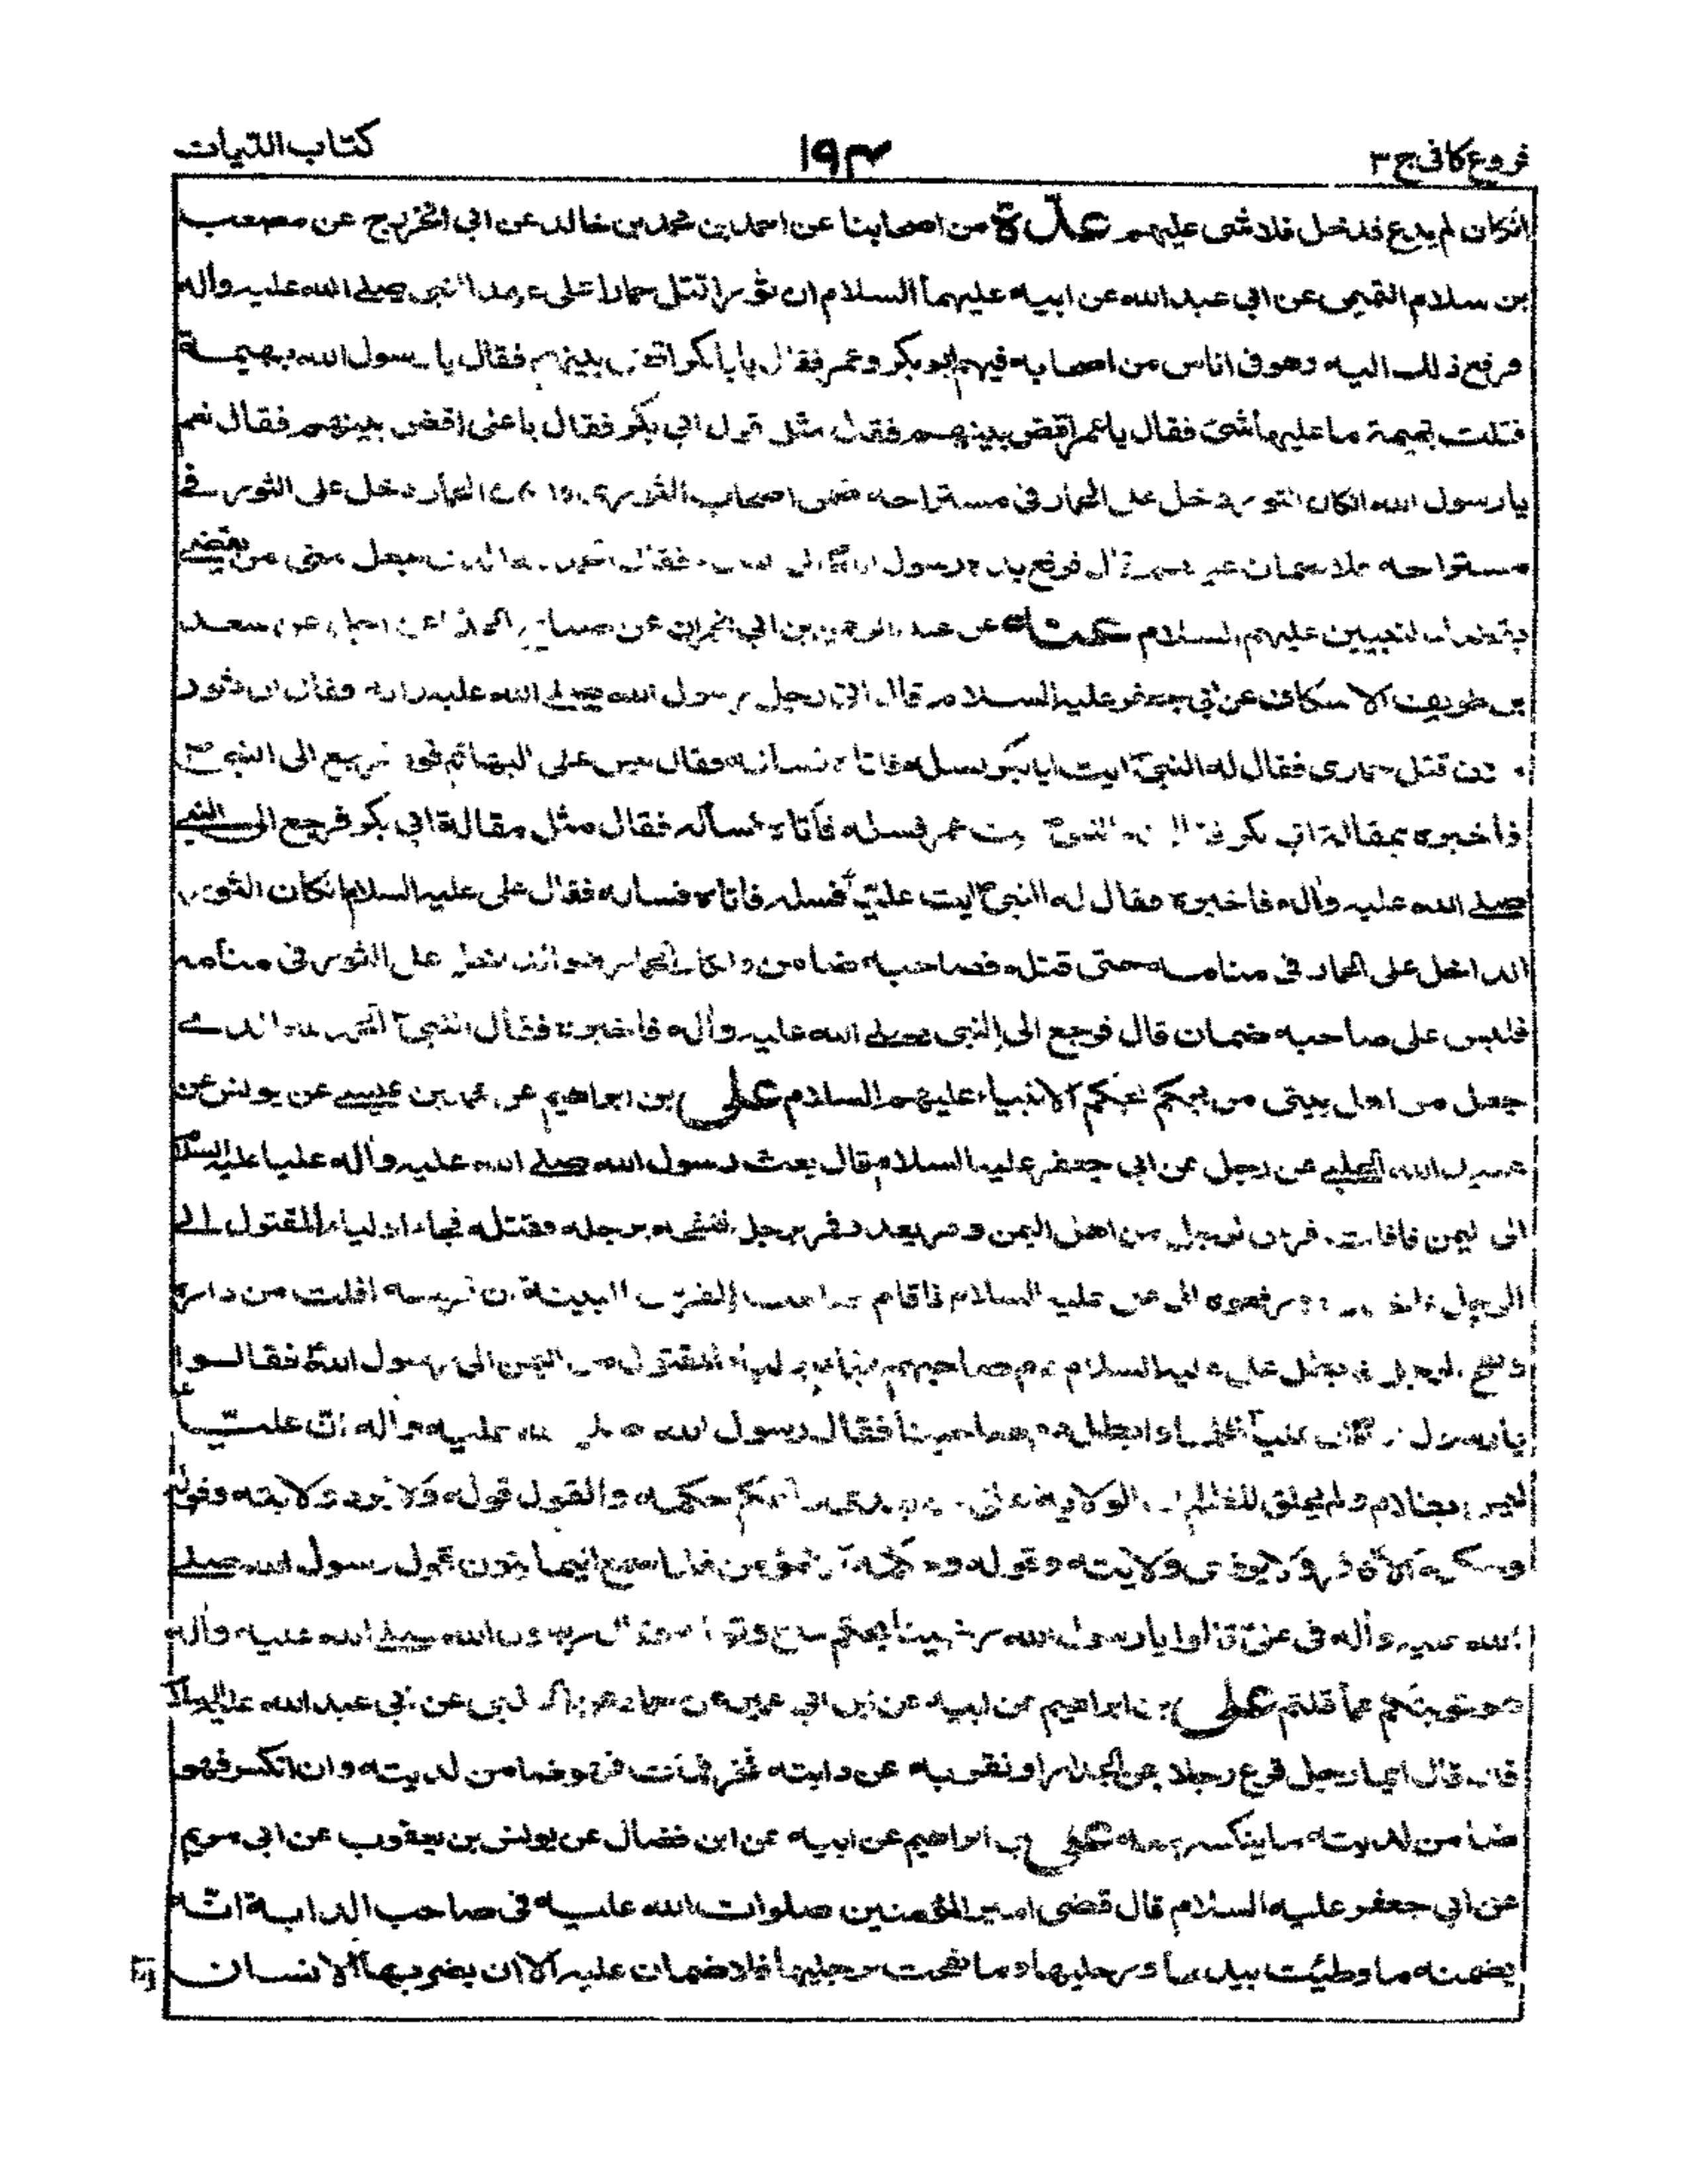 فروع كافى ج ٣
١٩٣
كتاب الديات
انكان لم يدع فدخل فلا شئ عليهم عدّة من اصحابنا عن احمد بن محمد بن خالد عن ابى الخزرج عن مصعب
بن سلام التميمى عن ابى عبد الله عن ابيه عليهما السلام ان ثورا قتل حمارا على عهد النبى صلى الله عليه وآله
فرفع ذلك اليه وهو فى اناس من اصحابه فيهم ابو بكر وعمر فقال يا ابا بكر اقض بينهم فقال يا رسول الله بهيمة
قتلت بهيمة ما عليها شئ فقال يا عمر اقض بينهم فقال مثل قول ابى بكر فقال يا على اقض بينهم فقال نعم
يا رسول الله انكان الثور دخل على الحمار فى مستراحه ضمن اصحاب الثور الحمار دخل على الثور فى
مستراحه فلا ضمان عليهم قال فرفع يده رسول الله الى فقال جعل منى من يقضى
بقضاء النبيين عليهم السلام عنه عن عبد الرحمن بن ابى نجران عن صباح الحذاء عن رجل عن سعد
بن طريف الاسكاف عن ابى جعفر عليه السلام قال اتى رجل رسول الله صلى الله عليه وآله فقال ان ثور
قتل حمارى فقال له النبىؐ ايت ابا بكر فسله فاتاه فسأله فقال ليس على البهائم قود فرجع الى النبىؐ
فاخبره بمقالة ابى بكر فقال له النبىؐ ايت عمر فسله فاتاه فسأله فقال مثل مقالة ابى بكر فرجع الى النبى
صلى الله عليه وآله فاخبره فقال له النبىؐ ايت علياؑ فسله فاتاه فسأله فقال على عليه السلام انكان الثور
الداخل على الحمار فى منامه حتى قتله فصاحبه ضامن وانكان الحمار هو الداخل على الثور فى منامه
فليس على صاحبه ضمان قال فرجع الى النبى صلى الله عليه وآله فاخبره فقال النبىؐ الحمد لله الذى
جعل من اهل بيتى من يحكم بحكم الانبياء عليهم السلام على بن ابراهيم عن محمد بن عيسى عن يونس عن
عبيد الله الحلبى عن رجل عن ابى جعفر عليه السلام قال بعث رسول الله صلى الله عليه وآله عليا عليه السلام
الى اليمن فافلت فرس لرجل من اهل اليمن ومر يعدو فمر برجل فنفحه برجله فقتله فجاء اولياء المقتول الى
الرجل فرفعوه الى على عليه السلام فاقام صاحب الفرس البينة ان فرسه افلت من داره
ونفح الرجل فابطل على عليه السلام دم صاحبهم فجاء اولياء المقتول من اليمن الى رسول اللهؐ فقالوا
يا رسول الله ان علياؑ ظلمنا وابطل دم صاحبنا فقال رسول الله صلى الله عليه وآله ان علياً
ليس بظلام ولم يخلق للظلم الولاية لعلى الحكم حكمه والقول قوله ولا يرد ولايته وقوله
وحكمه الا ولا يرضى ولايته وقوله وحكمه الا مؤمن فلما سمع اليمانيون قول رسول الله صلى
الله عليه وآله فى علىؑ قالوا يا رسول الله رضينا بحكم علىؑ وقوله فقال رسول الله صلى الله عليه وآله
هو توبتكم مما قلتم على بن ابراهيم عن ابيه عن ابن ابى عمير عن حماد عن الحلبى عن ابى عبد الله عليه السلام
انه قال ايما رجل فزع رجلا عن الجدار او نفر به عن دابته فخر فمات فهو ضامن لديته وان انكسر فهو
ضامن لدية ما ينكسر منه على بن ابراهيم عن ابيه عن ابن فضال عن يونس بن يعقوب عن ابى مريم
عن ابى جعفر عليه السلام قال قضى امير المؤمنين صلوات الله عليه فى صاحب الدابة انّه
يضمنه ما وطئت بيدها ورجلها وما نفحت برجلها فلا ضمان عليه الا ان يضربها الانسان